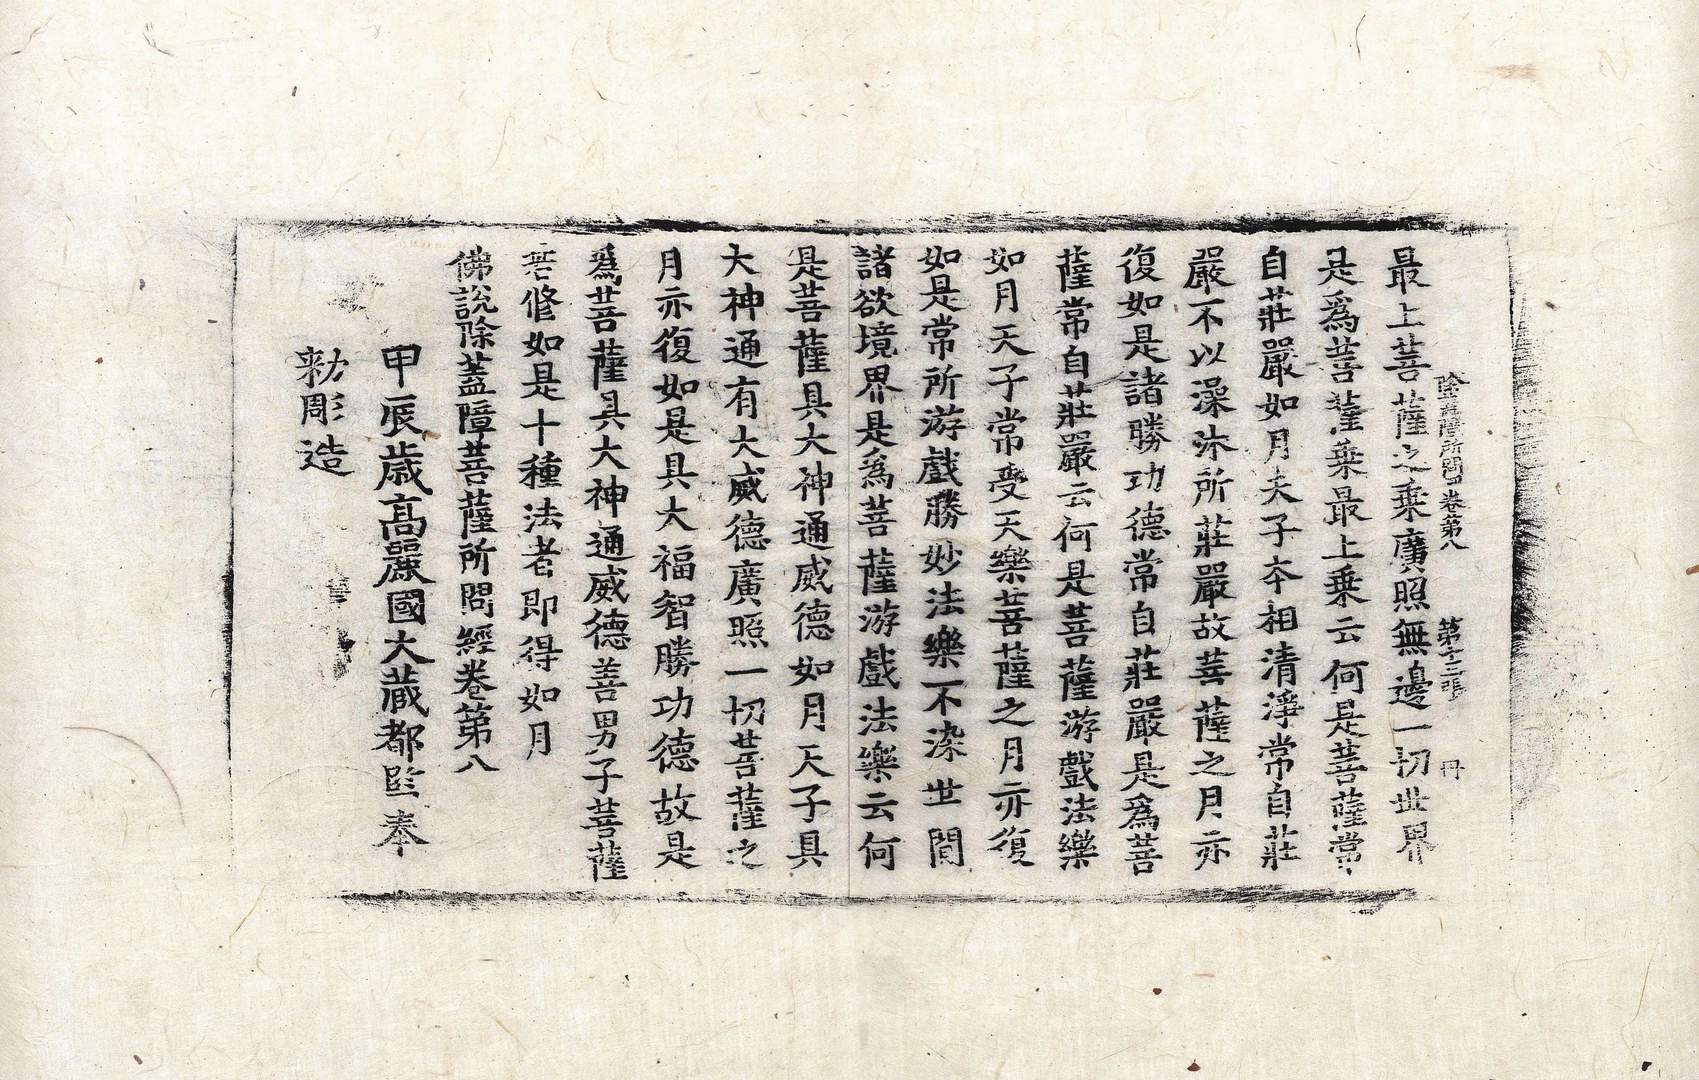 除蓋障所問經卷第八 第十三張 冊
最上菩薩之乗廣照無邊一切世界
是爲菩薩乗最上乗云何是菩薩常
自莊嚴如月天子夲相清淨常自莊
嚴不以澡沐所莊嚴故菩薩之月亦
復如是諸勝功德常自莊嚴是爲菩
薩常自莊嚴云何是菩薩游戲法樂
如月天子常受天樂菩薩之月亦復
如是常所游戲勝妙法樂不染世間
諸欲境界是爲菩薩游戲法樂云何
是菩薩具大神通威德如月天子具
大神通有大威德廣照一切菩薩之
月亦復如是具大福智勝功德故是
爲菩薩具大神通威德善男子菩薩
若修如是十種法者即得如月
佛說除蓋障菩薩所問經卷第八
甲辰歲高麗國大藏都監奉
勑彫造